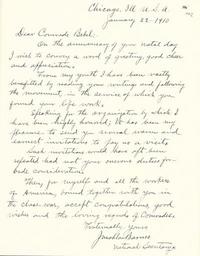 Chicago, Ill. U.S.A.
January 22-1910
Dear Comrade Bebel:
On the anniversary of your natal day
I wish to convey a word of greeting, good cheer
and appreciation.
From my youth I have been vastly
benefited by reading your writings and following
the movement, in the service of which you
found your life work.
Speaking for the organization by which I
have been highly honored; It has been my
pleasure to send you several warm and
earnest invitations to pay us a visit.
Such invitations would have oft been
repeated had not your onerous duties for-
bade consideration.
Then, for myself and all the workers
of America, bound together with you in
the class-war, accept congratulations, good
wishes and the loving regards of Comrades.
Fraternally yours
J Mahlon Barnes
National Secretary